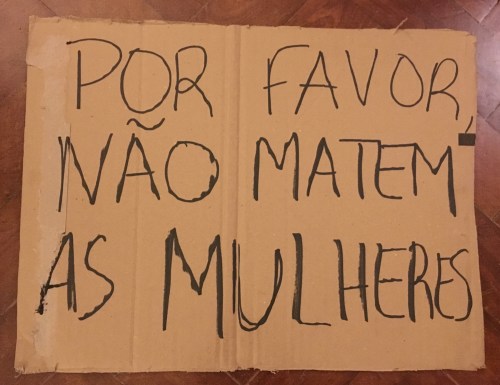 POR FAVOR,
NÃO MATEM
AS MULHERES